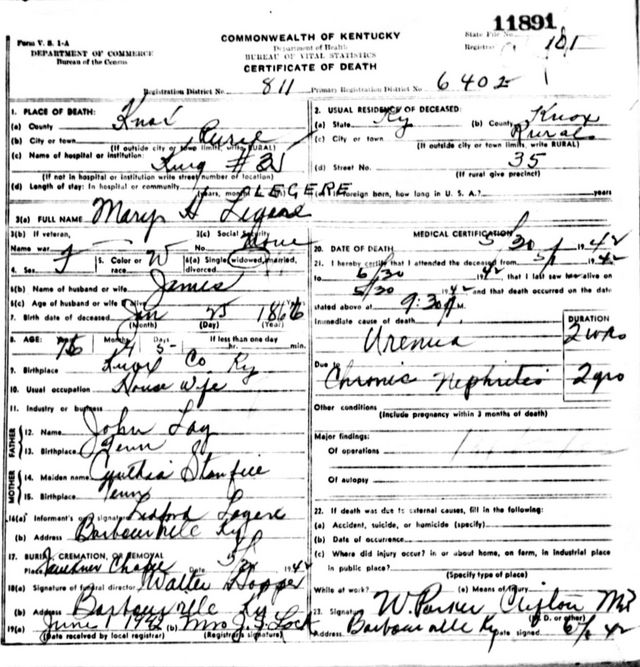 11891
Form V. S. 1-A
DEPARTMENT OF COMMERCE
Bureau of the Census
COMMONWEALTH OF KENTUCKY
Department of Health
BUREAU OF VITAL STATISTICS
CERTIFICATE OF DEATH
State File No.
Registrar's 101
Registration District No. 811 Primary Registration District No. 6402
1. PLACE OF DEATH:
(a) County Knox
(b) City or town Rural
(If outside city or town limits, write RURAL)
(c) Name of hospital or institution: #35
(If not in hospital or institution write street number or location)
(d) Length of stay: In hospital or community
(years, months or days)
2. USUAL RESIDENCE OF DECEASED:
(a) State Ky (b) County Knox
(c) City or town Rural
(If outside city or town limits, write RURAL)
(d) Street No. 35
(If rural give precinct)
(e) If foreign born, how long in U. S. A.? years
LEGERE
3(a) FULL NAME Mary H Legere
3(b) If veteran,
Name war
3(c) Social Security
No. None
4. Sex F 5. Color or race W 6(a) Single, widowed, married, divorced
6(b) Name of husband or wife James
6(c) Age of husband or wife if alive years
7. Birth date of deceased Jan 25 1866
(Month) (Day) (Year)
8. AGE: Years 76 Months 4 Days 5 If less than one day
hr. min.
9. Birthplace Knox Co. Ky
10. Usual occupation House wife
11. Industry or business
FATHER
12. Name John Lay
13. Birthplace Tenn
MOTHER
14. Maiden name Cynthia Stanfill
15. Birthplace Tenn
16(a) Informant's own signature Legere
(b) Address Barbourville Ky
17. BURIAL, CREMATION, OR REMOVAL
Place Chapel Date 1942
18(a) Signature of funeral director Walter Hopper
(b) Address Barbourville Ky
19(a) June 1 1942 Mrs J. S. Lock
(Date received by local registrar) (Registrar's signature)
MEDICAL CERTIFICATION
20. DATE OF DEATH 5/30 1942
21. I hereby certify that I attended the deceased from 1942
to 5/30 1942 that I last saw her alive on
5/30 1942 and that death occurred on the date
stated above at 9:30 P.M.
DURATION
Immediate cause of death
Uremia 2 wks
Due to
Chronic Nephritis 2 yrs
Other conditions
(Include pregnancy within 3 months of death)
Major findings:
Of operations
Of autopsy
22. If death was due to external causes, fill in the following:
(a) Accident, suicide, or homicide (specify)
(b) Date of occurrence
(c) Where did injury occur? in or about home, on farm, in industrial place
in public place?
(Specify type of place)
While at work? (e) Means of injury
23. Signature W. Parker Clifton MD
(M. D. or other)
Address Barbourville Ky Date signed 6/1 42